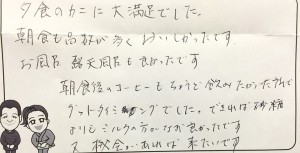 夕食のカニに大満足でした。
朝食も品数が多くおいしかったです
お風呂 露天風呂も良かったです
朝食後のコーヒーもちょうど飲みたかったので
グットタイミングでした。できれば砂糖
よりミルクの方がなお良かったです
又 機会があれば来たいです